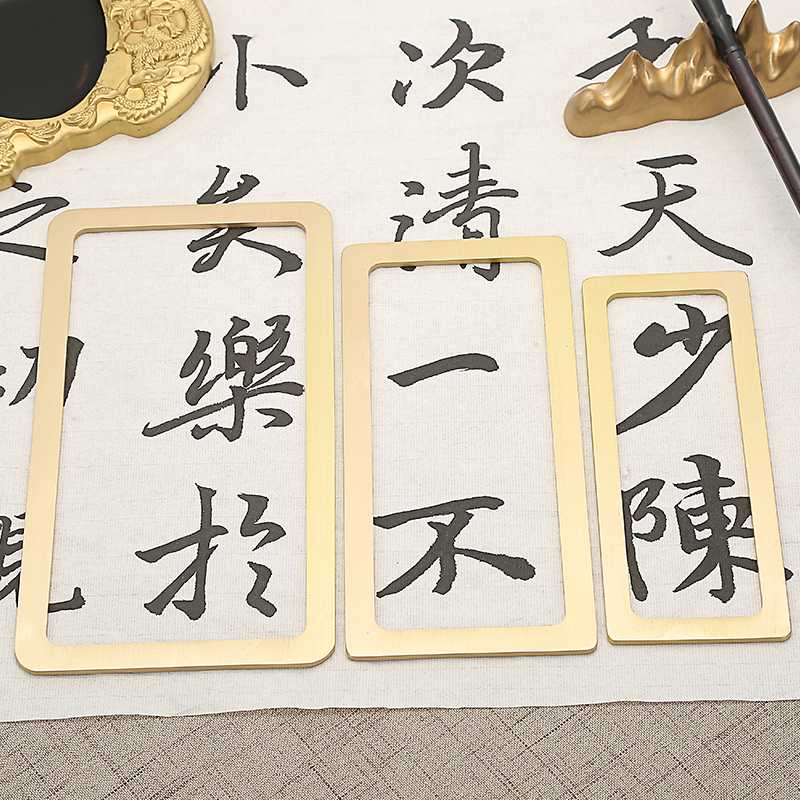 天少陳
次清一不
卜矣樂於
之